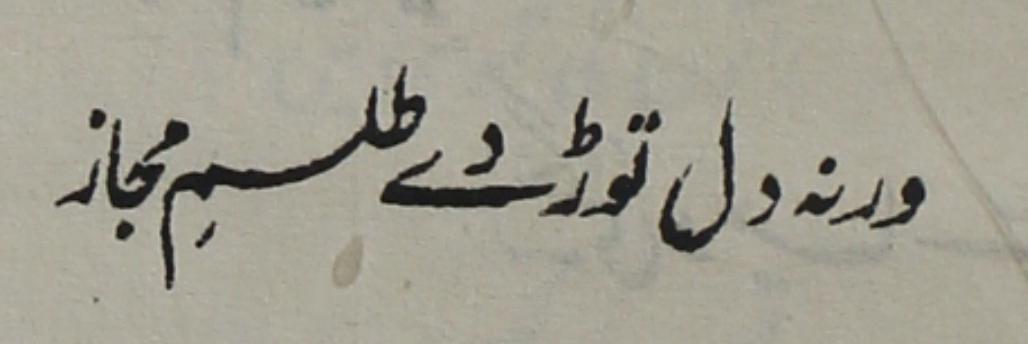 ورنہ دل توڑ دے طلسمِ مجاز